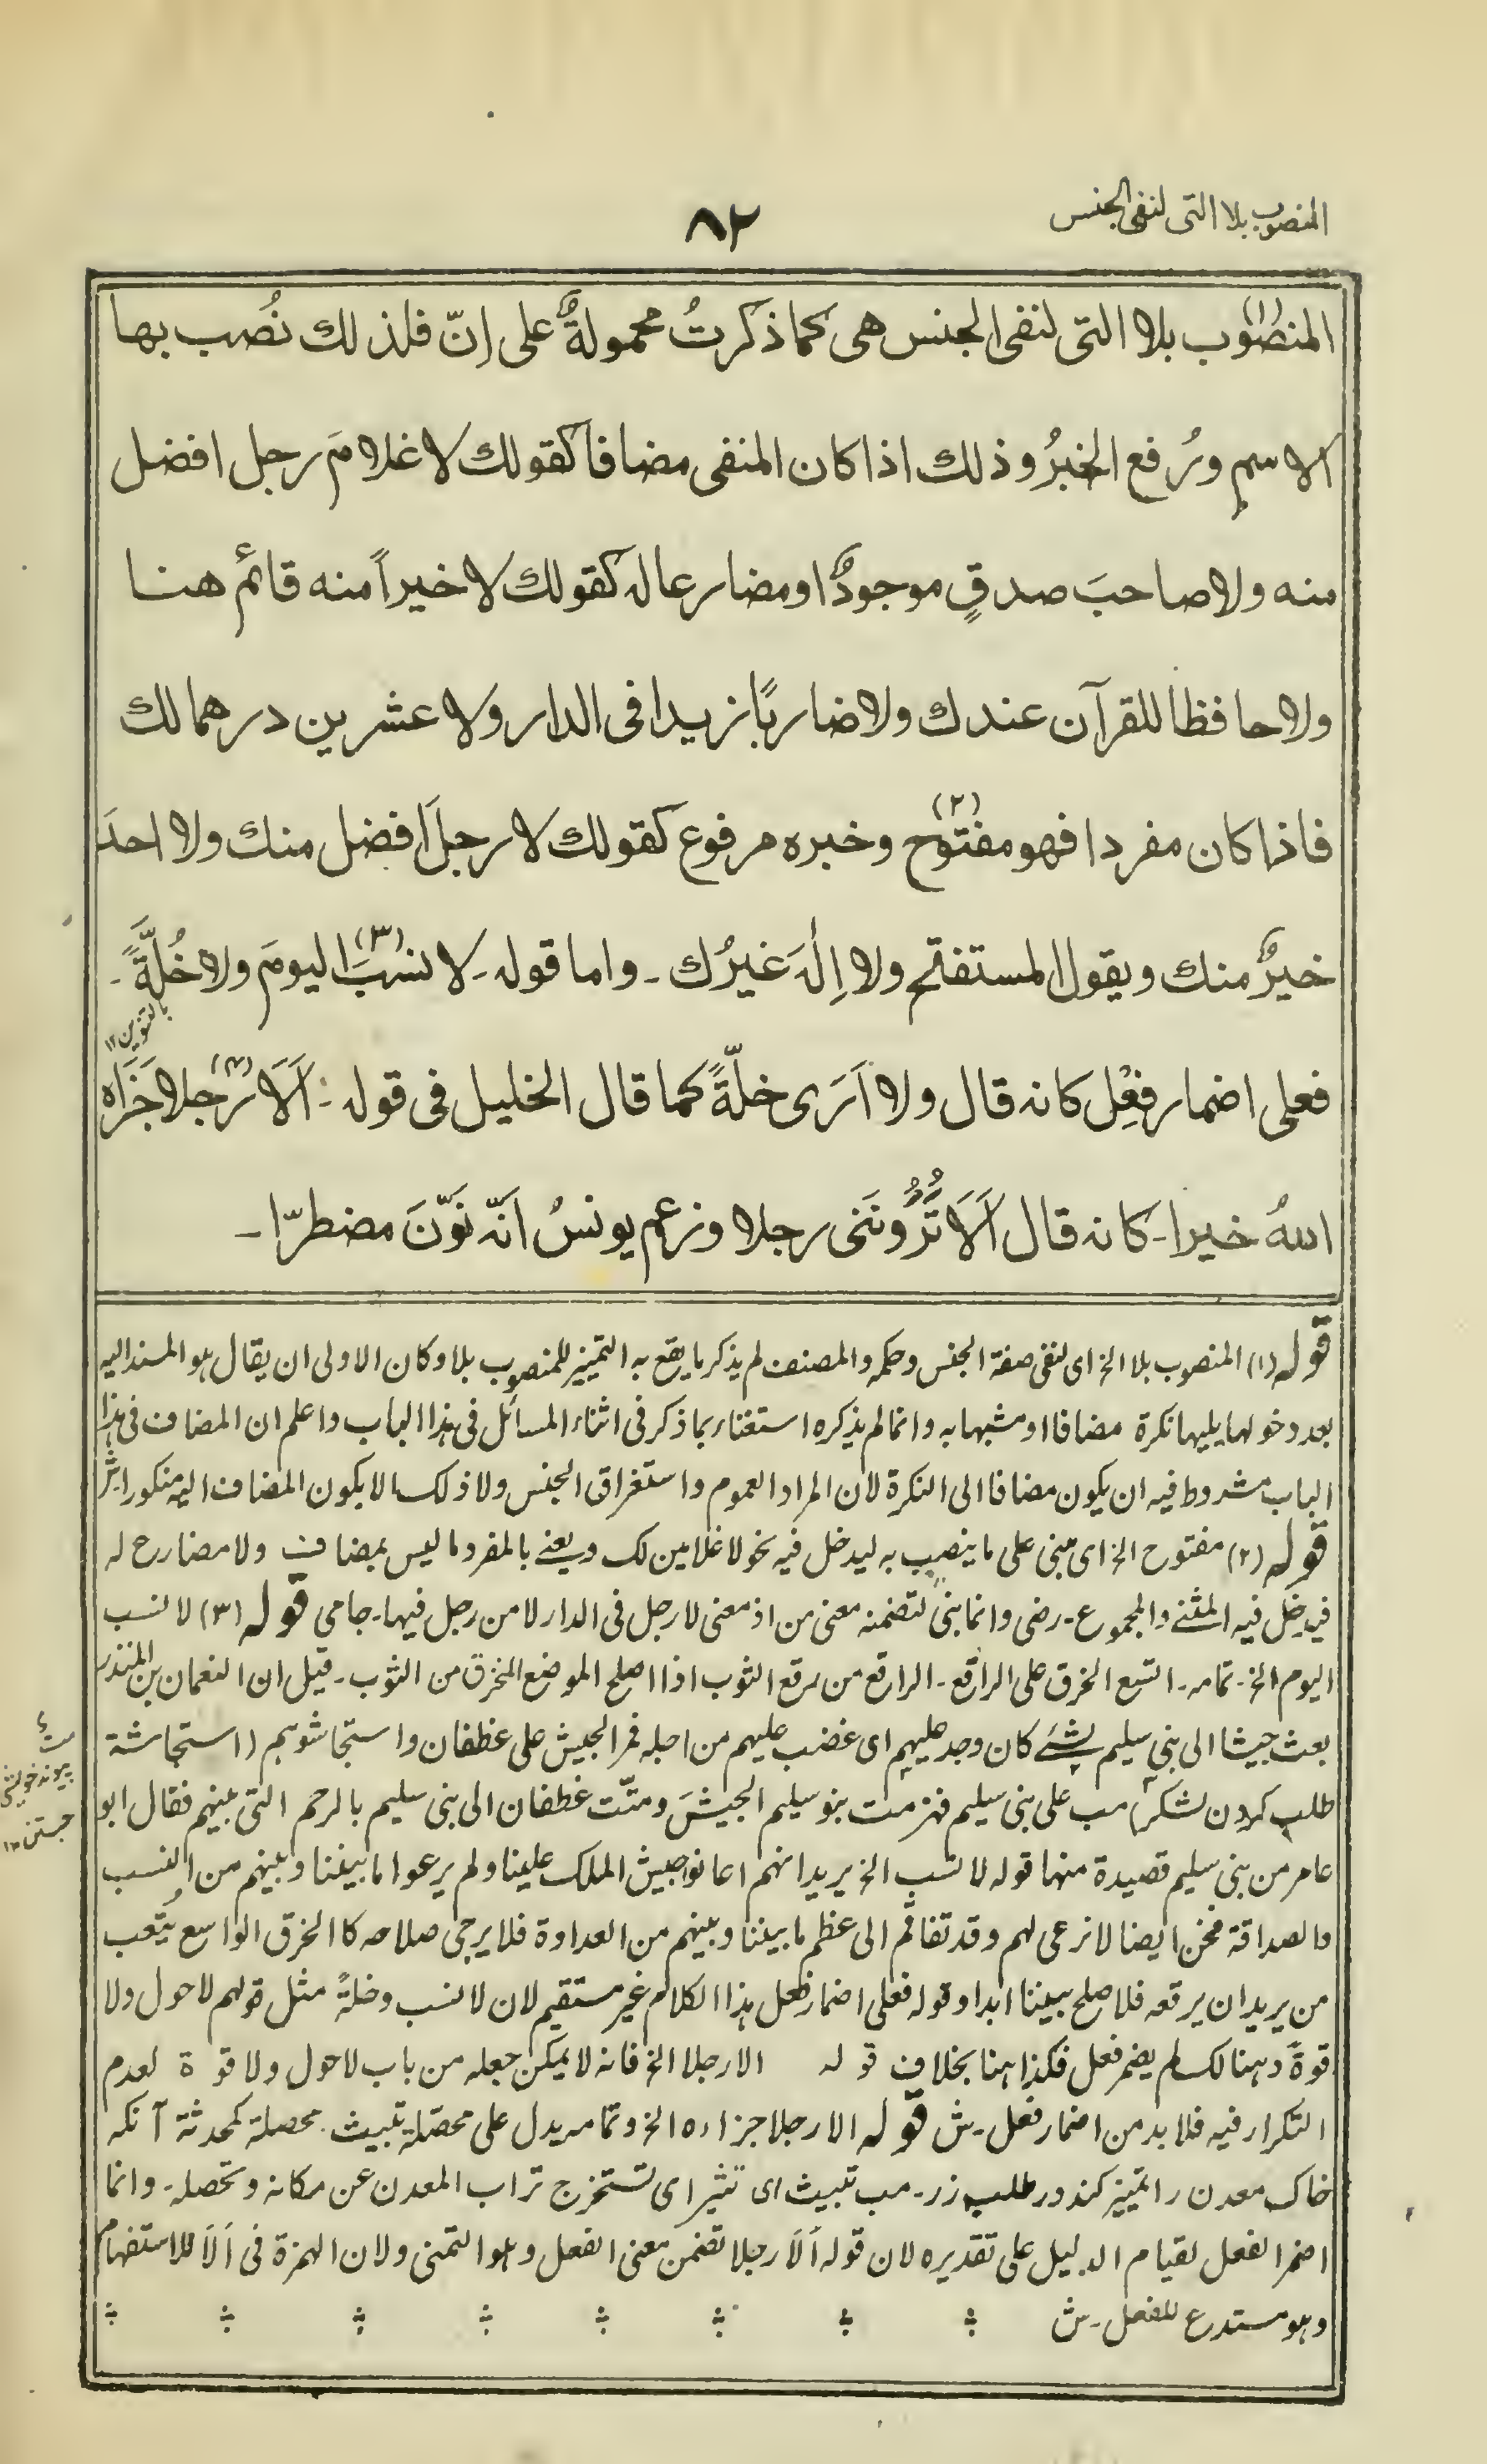 المنصوب بلا التى لنفى الجنس
٨٢
المنصوب(١) بلا التى لنفى الجنس هى كما ذكرتُ محمولةٌ على اِنّ فلذلك نُصب بها
الاسم ورُفع الخبرُ وذلك اذا كان المنفى مضافا كقولك لا غلامَ رجل افضل
منه ولا صاحبَ صدقٍ موجودٌ او مضارعا له كقولك لا خيراً منه قائمٌ هنا
ولا حافظا للقرآن عندك ولا ضاربًا زيدا فى الدار ولا عشرين درهما لك
فاذا كان مفردا فهو مفتوح(٢) وخبره مرفوع كقولك لا رجلَ افضل منك ولا احدَ
خيرٌ منك ويقول المستفتح ولا اِلٰهَ غيرُك ـ واما قوله ـ لا نسبَ(٣) اليومَ ولا خُلَّةً ـ
بالتنوين ١٢
فعلى اضمار فِعْل كانه قال ولا اَرَى خلّةً كما قال الخليل فى قوله ـ اَلَا رجلا(٤) جَزَاه
اللهُ خيرا ـ كانه قال اَلَا تُرُونَنى رجلا وزعم يونسُ انّه نَوَّنَ مضطرّا ـ
قوله (١) المنصوب بلا الخ اى لنفى صفة الجنس وحكمه والمصنف لم يذكر ما يقع به التمييز للمنصوب بلا وكان الاولى ان يقال هو المسند اليه
بعد دخولها يليها نكرة مضافا او مشبها به وانما لم يذكره استغناء بما ذكر فى اثناء المسائل فى هذا الباب واعلم ان المضاف فى هذا
الباب مشروط فيه ان يكون مضافا الى النكرة لان المراد العموم واستغراق الجنس ولا ذلك الا بكون المضاف اليه منكورا ـ ش
قوله (٢) مفتوح الخ اى مبنى على ما ينصب به ليدخل فيه نحو لا غلامين لك ويعنى بالمفرد ما ليس بمضاف ولا مضارع له
فيدخل فيه المثنى والمجموع ـ رضى وانما بنى لتضمنه معنى من اذ معنى لا رجل فى الدار لا من رجل فيها ـ جامى قوله (٣) لا نسب
اليوم الخ ـ تمامه ـ اتسع الخرق على الراقع ـ الراقع من رقع الثوب اذا اصلح الموضع المنخرق من الثوب ـ قيل ان النعمان بن المنذر
بعث جيشا الى بنى سليم لشئ كان وجد عليهم اى غضب عليهم من اجله فمر الجيش على غطفان واستجاشوهم (استجاشة
طلب كردن لشكر) مب على بنى سليم فهزمت بنو سليم الجيشَ ومتّت غطفان الى بنى سليم بالرحم التى بينهم فقال ابو
عامر من بنى سليم قصيدة منها قوله لا نسب الخ يريد انهم اعانوا جيش الملك علينا ولم يرعوا ما بيننا وبينهم من النسب
والصداقة فنحن ايضا لا نرعى لهم وقد تفاقم الى عظم ما بيننا وبينهم من العداوة فلا يرجى صلاحه كالخرق الواسع يُتعب
من يريد ان يرقعه فلا صلح بيننا ابدا وقوله فعلى اضمار فعل هذا الكلام غير مستقيم لان لا نسب وخلةً مثل قولهم لا حول ولا
قوةً وهنالك لم يضمر فعل فكذا ههنا بخلاف قوله الا رجلا الخ فانه لا يمكن جعله من باب لا حول ولا قوة لعدم
التكرار فيه فلا بد من اضمار فعل ـ ش قوله الا رجلا جزاه الخ وتمامه يدل على محصّلة تبيث ـ محصلة كمحدثة آنكه
خاك معدن را تمييز كند در طلب زر ـ مب تبيث اى تثير اى تستخرج تراب المعدن عن مكانه وتحصله ـ وانما
اضمر الفعل لقيام الدليل على تقديره لان قوله اَلَا رجلا تضمن معنى الفعل وهو التمنى ولان الهمزة فى اَلَا للاستفهام
وهو مستدع للفعل ـ ش
پيوند خويشى
جستن ١٢